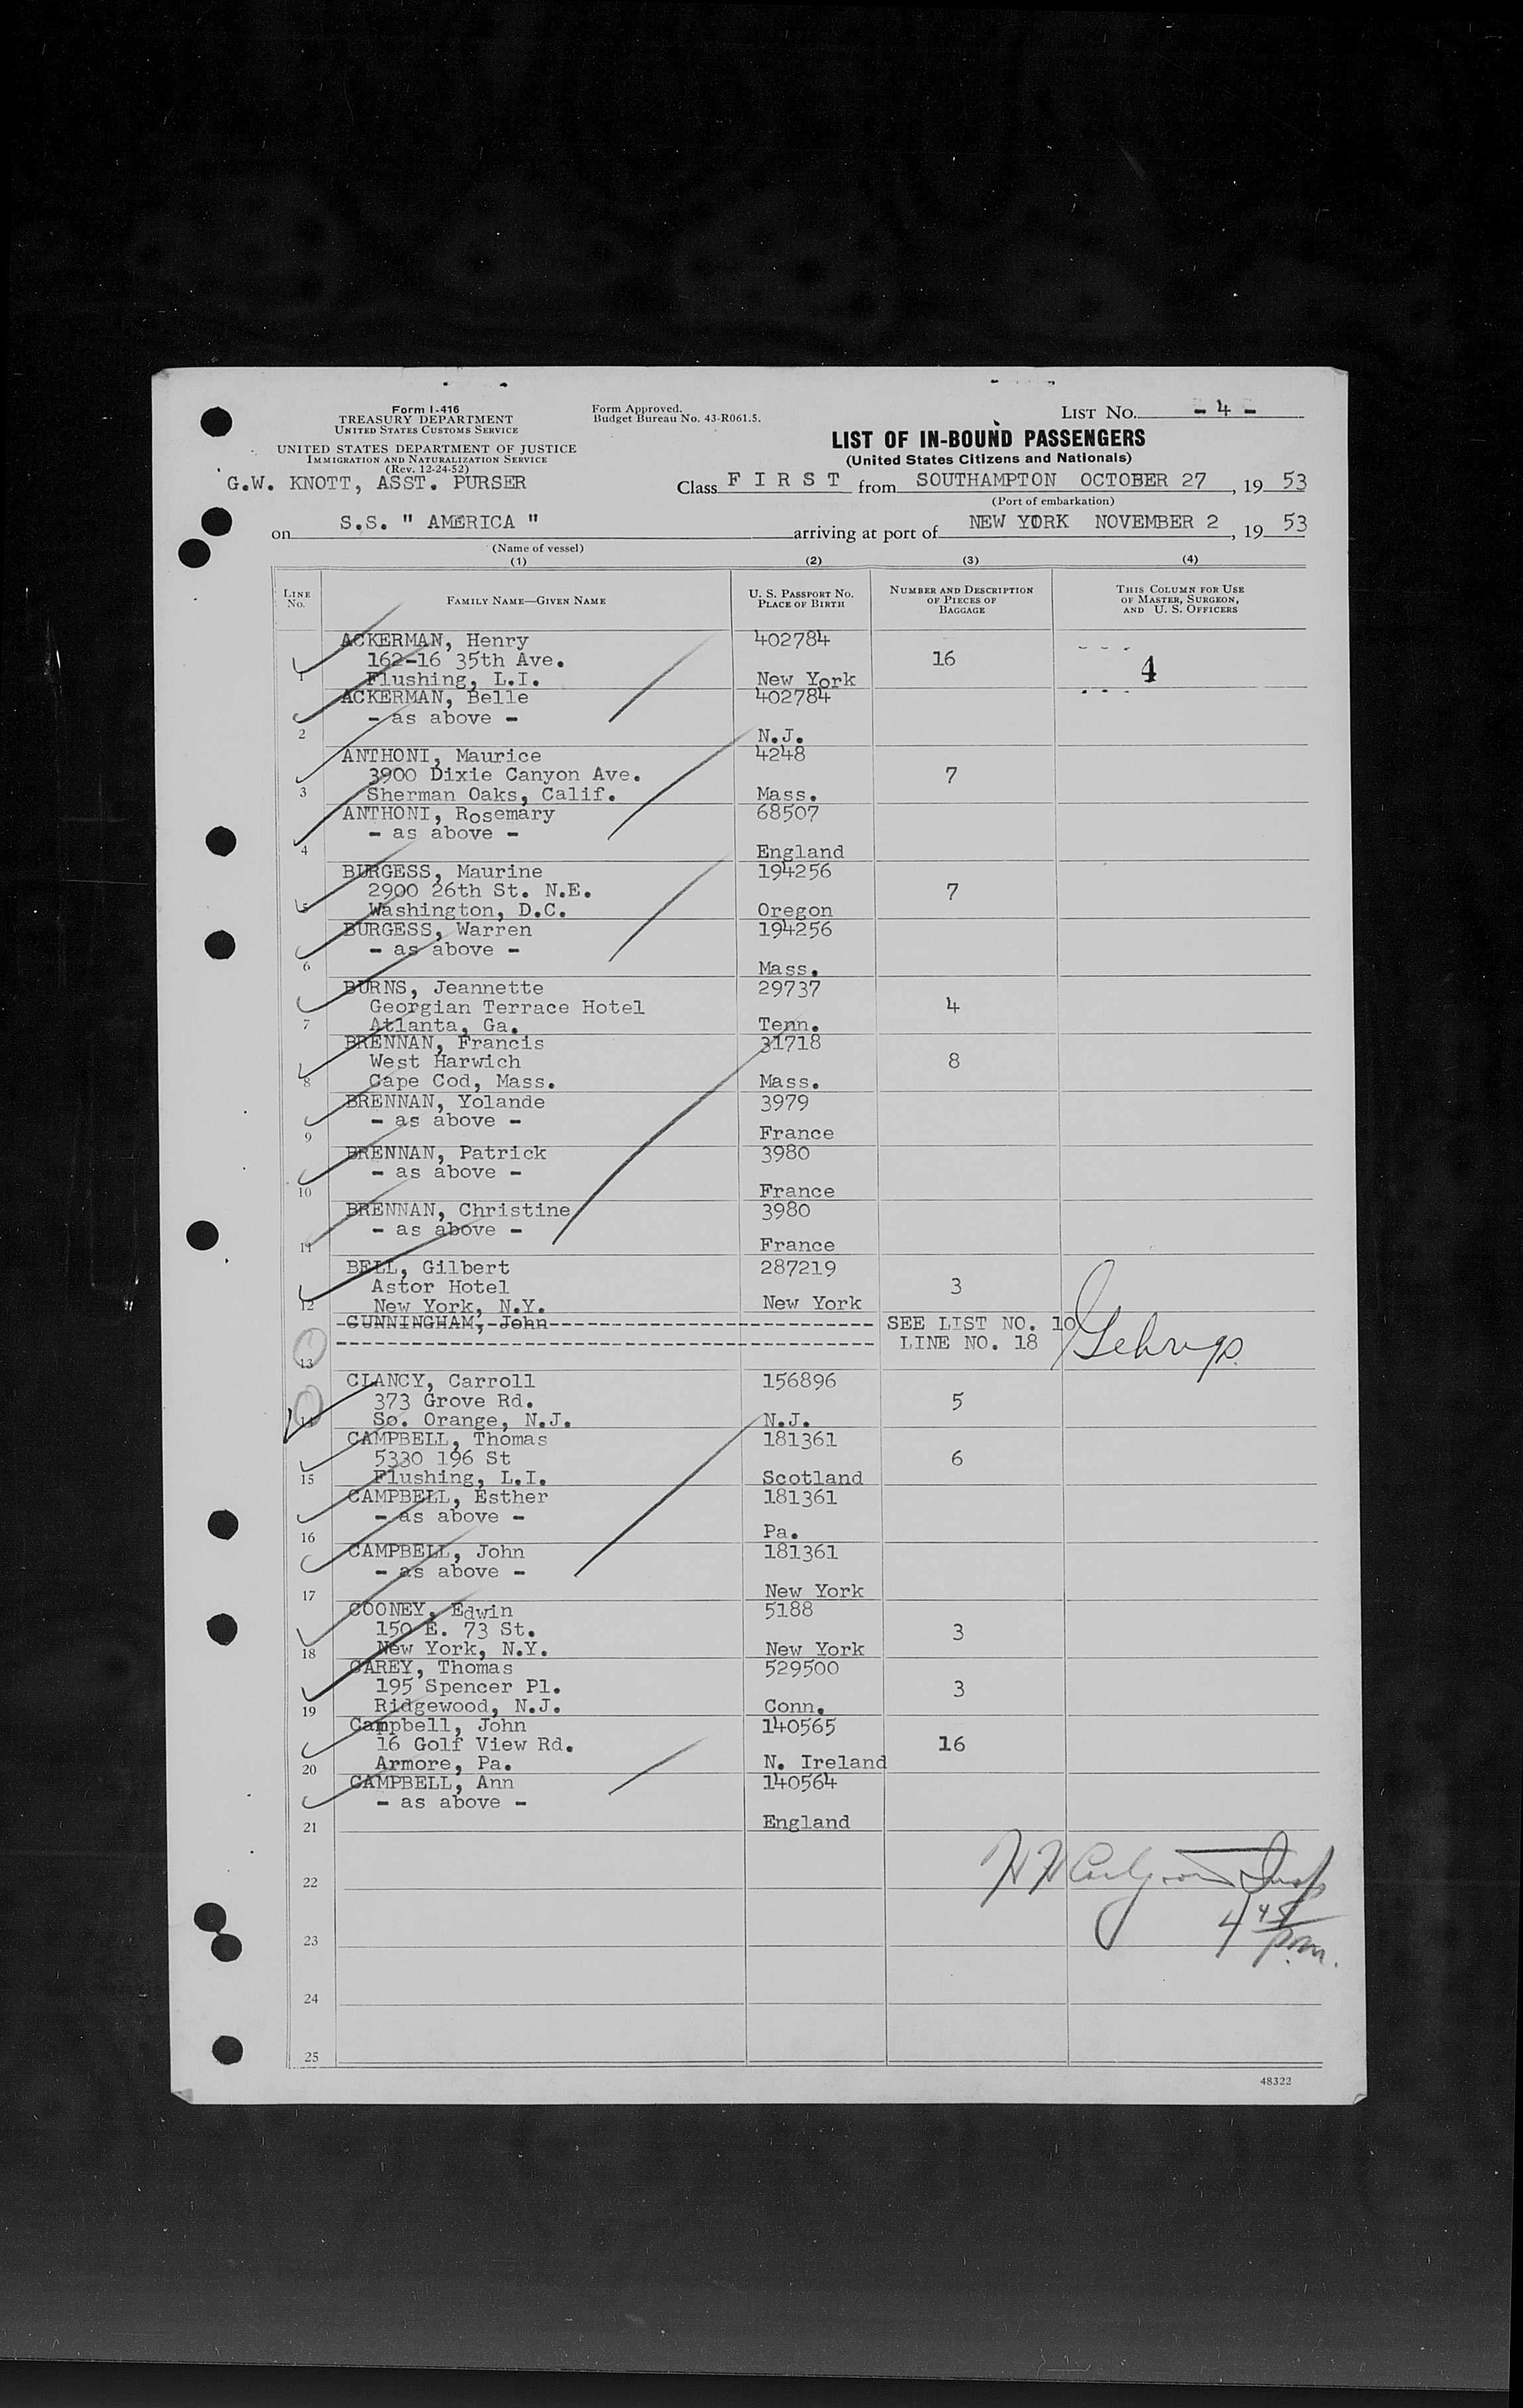 Form I-416
TREASURY DEPARTMENT
UNITED STATES CUSTOMS SERVICE
UNITED STATES DEPARTMENT OF JUSTICE
IMMIGRATION AND NATURALIZATION SERVICE
(Rev. 12-24-52)
G.W. KNOTT, ASST. PURSER
Form Approved.
Budget Bureau No. 43-R061.5.
LIST NO. - 4 -
LIST OF IN-BOUND PASSENGERS
(United States Citizens and Nationals)
Class F I R S T from SOUTHAMPTON OCTOBER 27, 19 53
(Port of embarkation)
on S.S. " AMERICA " arriving at port of NEW YORK NOVEMBER 2, 19 53
(Name of vessel)
(1) (2) (3) (4)
LINE NO. FAMILY NAME—GIVEN NAME U. S. PASSPORT NO. PLACE OF BIRTH NUMBER AND DESCRIPTION OF PIECES OF BAGGAGE THIS COLUMN FOR USE OF MASTER, SURGEON, AND U. S. OFFICERS
ACKERMAN, Henry 402784
162-16 35th Ave. 16 4
1 Flushing, L.I. New York
ACKERMAN, Belle 402784
- as above -
2 N.J.
ANTHONI, Maurice 4248
3900 Dixie Canyon Ave. 7
3 Sherman Oaks, Calif. Mass.
ANTHONI, Rosemary 68507
- as above -
4 England
BURGESS, Maurine 194256
2900 26th St. N.E. 7
5 Washington, D.C. Oregon
BURGESS, Warren 194256
- as above -
6 Mass.
BURNS, Jeannette 29737
Georgian Terrace Hotel 4
7 Atlanta, Ga. Tenn.
BRENNAN, Francis 31718
West Harwich 8
8 Cape Cod, Mass. Mass.
BRENNAN, Yolande 3979
- as above -
9 France
BRENNAN, Patrick 3980
- as above -
10 France
BRENNAN, Christine 3980
- as above -
11 France
BELL, Gilbert 287219
Astor Hotel 3
12 New York, N.Y. New York
CUNNINGHAM, John SEE LIST NO. 10
LINE NO. 18
13
CLANCY, Carroll 156896
373 Grove Rd. 5
14 So. Orange, N.J. N.J.
CAMPBELL, Thomas 181361
5330 196 St 6
15 Flushing, L.I. Scotland
CAMPBELL, Esther 181361
- as above -
16 Pa.
CAMPBELL, John 181361
- as above -
17 New York
COONEY, Edwin 5188
150 E. 73 St. 3
18 New York, N.Y. New York
CAREY, Thomas 529500
195 Spencer Pl. 3
19 Ridgewood, N.J. Conn.
Campbell, John 140565
16 Golf View Rd. 16
20 Armore, Pa. N. Ireland
CAMPBELL, Ann 140564
- as above -
21 England
22
23 4 45 p.m.
24
25
48322